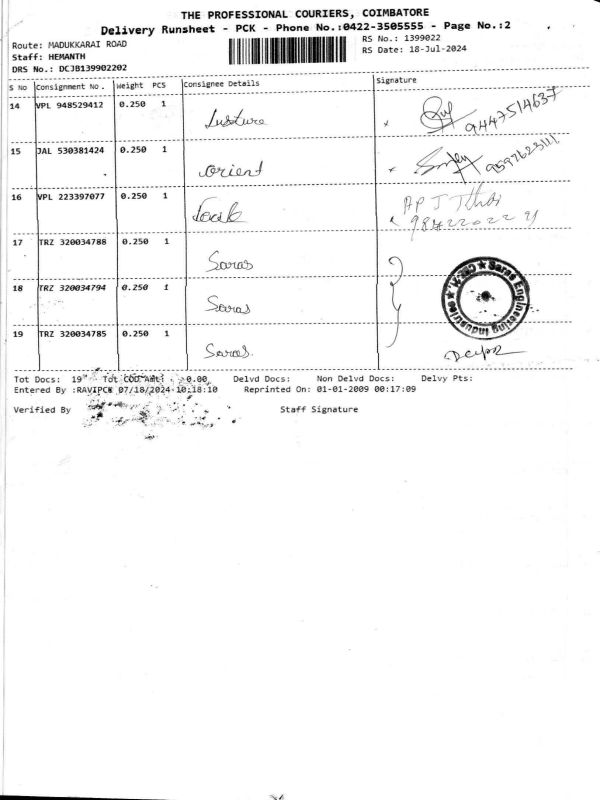 THE PROFESSIONAL COURIERS, COIMBATORE
Delivery Runsheet - PCK - Phone No.:0422-3505555 - Page No.:2
Route: MADUKKARAI ROAD
RS No.: 1399022
Staff: HEMANTH
RS Date: 18-Jul-2024
DRS No.: DCJB139902202
S No Consignment No. Weight PCS Consignee Details Signature
14 VPL 948529412 0.250 1
9447514637
15 JAL 530381424 0.250 1 orient
16 VPL 223397077 0.250 1
17 TRZ 320034788 0.250 1 Saras
18 TRZ 320034794 0.250 1 Saras
Saras Engineering Industries
19 TRZ 320034785 0.250 1 Saras.
Tot Docs: 19 Tot COD Amt: 0.00 Delvd Docs: Non Delvd Docs: Delvy Pts:
Entered By :RAVIPCK 07/18/2024 10:18:10 Reprinted On: 01-01-2009 00:17:09
Verified By Staff Signature